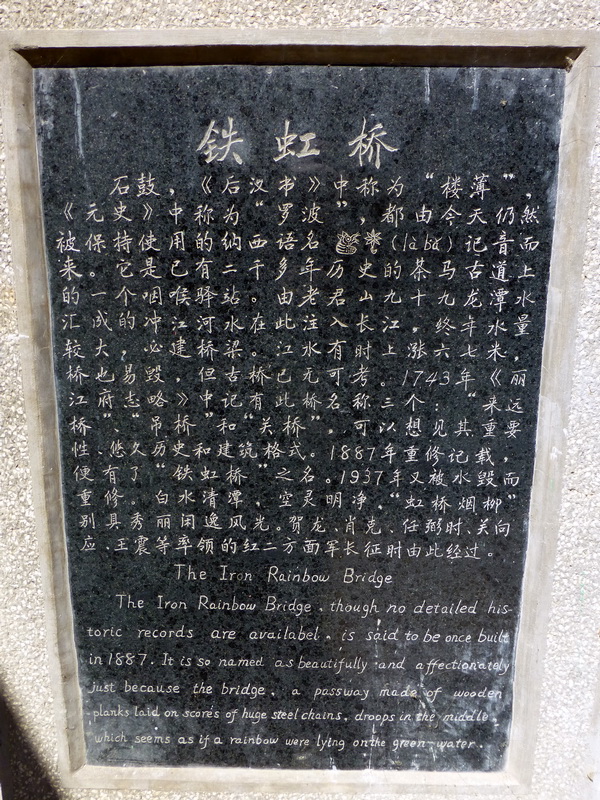 铁虹桥
石鼓，《后汉书》中称为“楼薄”，
《元史》中称为“罗波”，都由今天仍然
被保持使用的纳西语名(là bā)记音而
来。它是已有二千多年历史的茶马古道上
的一个咽喉驿站。由老君山九十九龙潭水
汇成的冲江河水在此注入长江，终年水量
较大，必建桥梁。江水有时上涨六七米，
桥也易毁，但古桥已无可考。1743年《丽
江府志略》中记有此桥名称三个：“来远
桥”、“吊桥”和“关桥”，可以想见其重要
性、悠久历史和建筑格式。1887年重修记载，
便有了“铁虹桥”之名。1937年又被水毁而
重修。白水清潭，空灵明净，“虹桥烟柳”
别具秀丽闲逸风光。贺龙、肖克、任弼时、关向
应、王震等率领的红二方面军长征时由此经过。
The Iron Rainbow Bridge
The Iron Rainbow Bridge, though no detailed his-
toric records are availabel, is said to be once built
in 1887. It is so named as beautifully and affectionately
just because the bridge, a passway made of wooden
planks laid on scores of huge steel chains, droops in the middle
which seems as if a rainbow were lying on the green water.